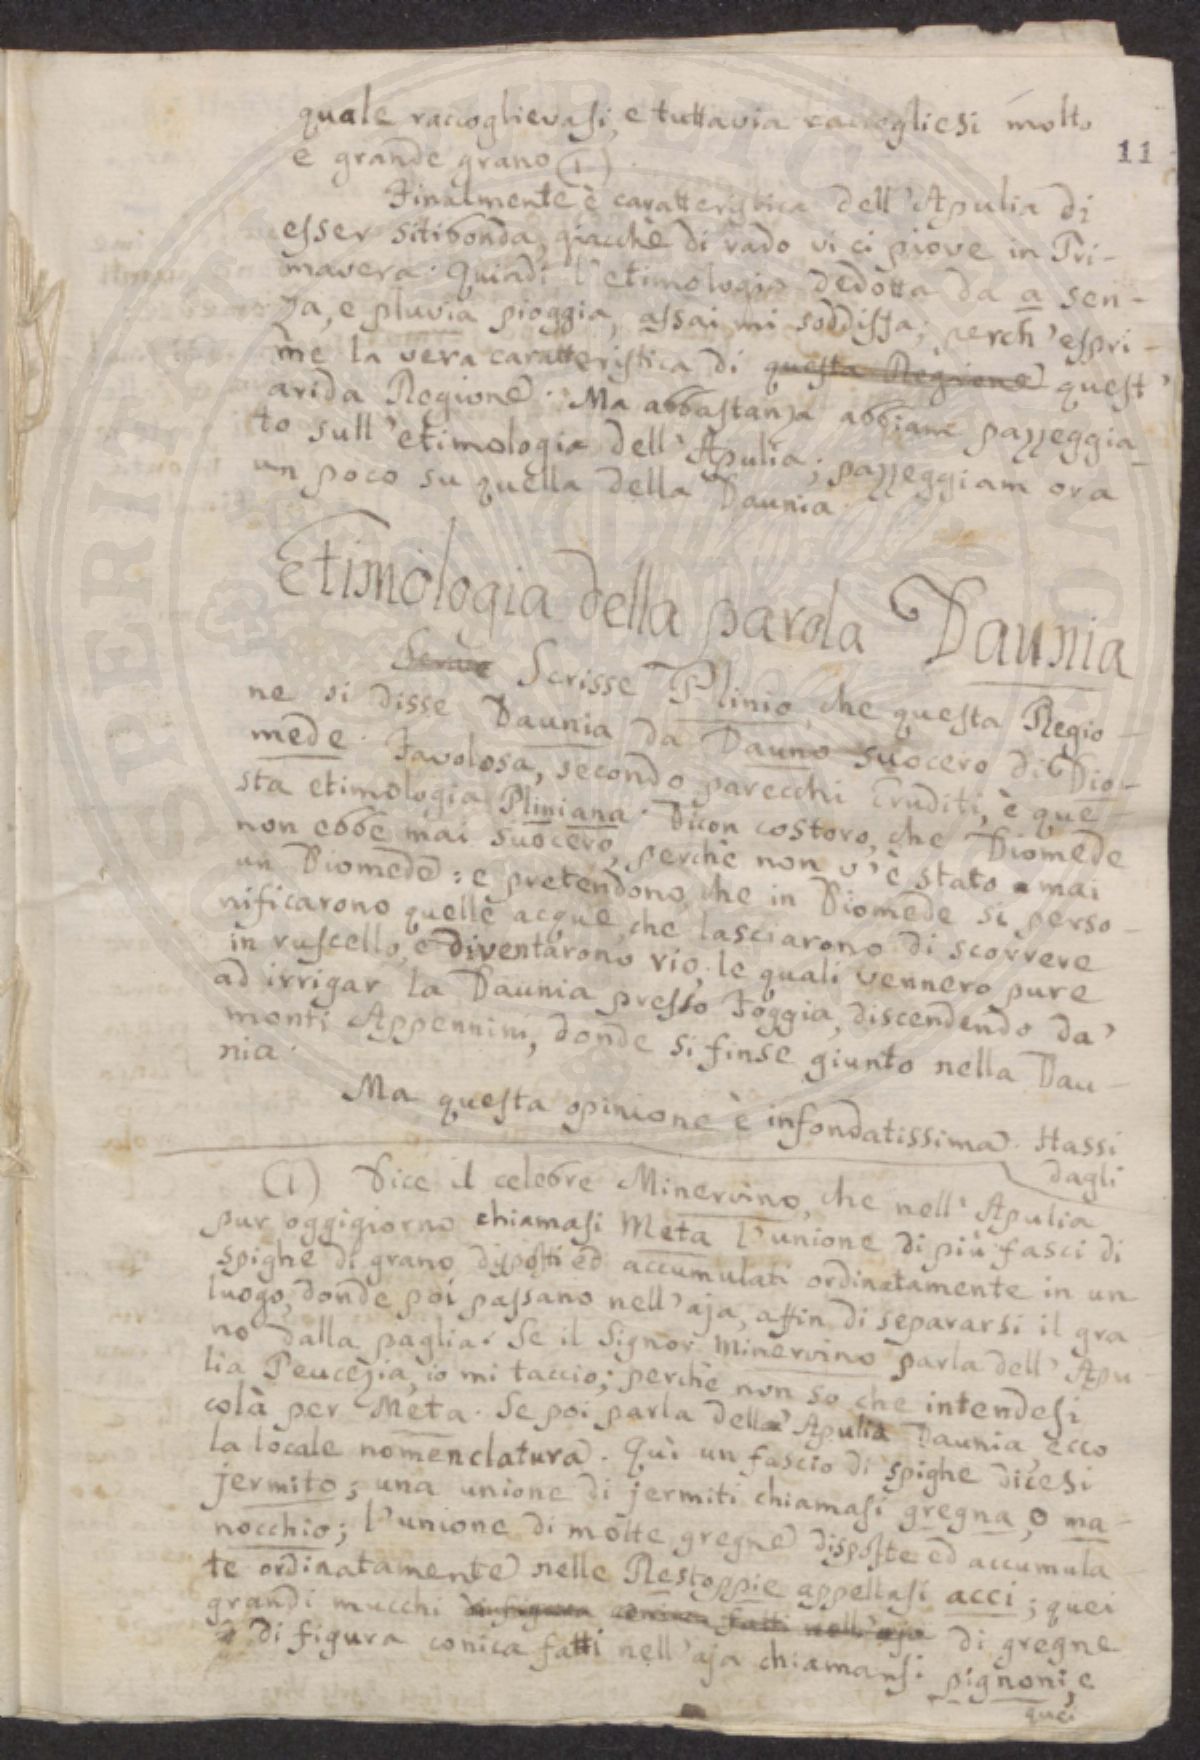 quale raccoglievasi, e tuttavia raccogliesi molto
11
e grande grano (1).
Finalmente è caratteristica dell'Apulia di
esser sitibonda, giacchè di rado vi ci piove in Pri-
mavera. Quindi l'etimologia dedotta da a sen-
za, e pluvia pioggia, assai mi soddisfa; perch'espri-
me la vera caratteristica di questa Regione quest'
arida Regione. Ma abbastanza abbiam passeggia-
to sull'etimologia dell'Apulia; passeggiam ora
un poco su quella della Daunia.
Etimologia della parola Daunia
Scrisse Plinio, che questa Regio-
ne si disse Daunia da Dauno suocero di Dio-
mede. Favolosa, secondo parecchi Eruditi, è que-
sta etimologia Pliniana. Dicon costoro, che Diomede
non ebbe mai suocero, perchè non v'è stato mai
un Diomede: e pretendono, che in Diomede si perso-
nificarono quelle acque, che lasciarono di scorrere
in ruscello, e diventarono rio; le quali vennero pure
ad irrigar la Daunia presso Foggia, discendendo da'
monti Appennini, donde si finse giunto nella Dau-
nia.
Ma questa opinione è infondatissima. Hassi
dagli
(1) Dice il celebre Minervino, che nell'Apulia
pur oggigiorno chiamasi Meta l'unione di più fasci di
spighe di grano disposti ed accumulati ordinatamente in un
luogo, donde poi passano nell'aja, affin di separarsi il gra-
no dalla paglia. Se il Signor Minervino parla dell'Apu-
lia Peucezia, io mi taccio; perchè non so che intendesi
colà per Meta. Se poi parla della Apulia Daunia, ecco
la locale nomenclatura. Quì un fascio di spighe dicesi
jermito; una unione di jermiti chiamasi gregna, o ma-
nocchio; l'unione di molte gregne disposte ed accumula-
te ordinatamente nelle Restoppie appellasi acci; quei
grandi mucchi di figura conica fatti nell'aja di gregne
di figura conica fatti nell'aja chiamansi pignoni, e
quei